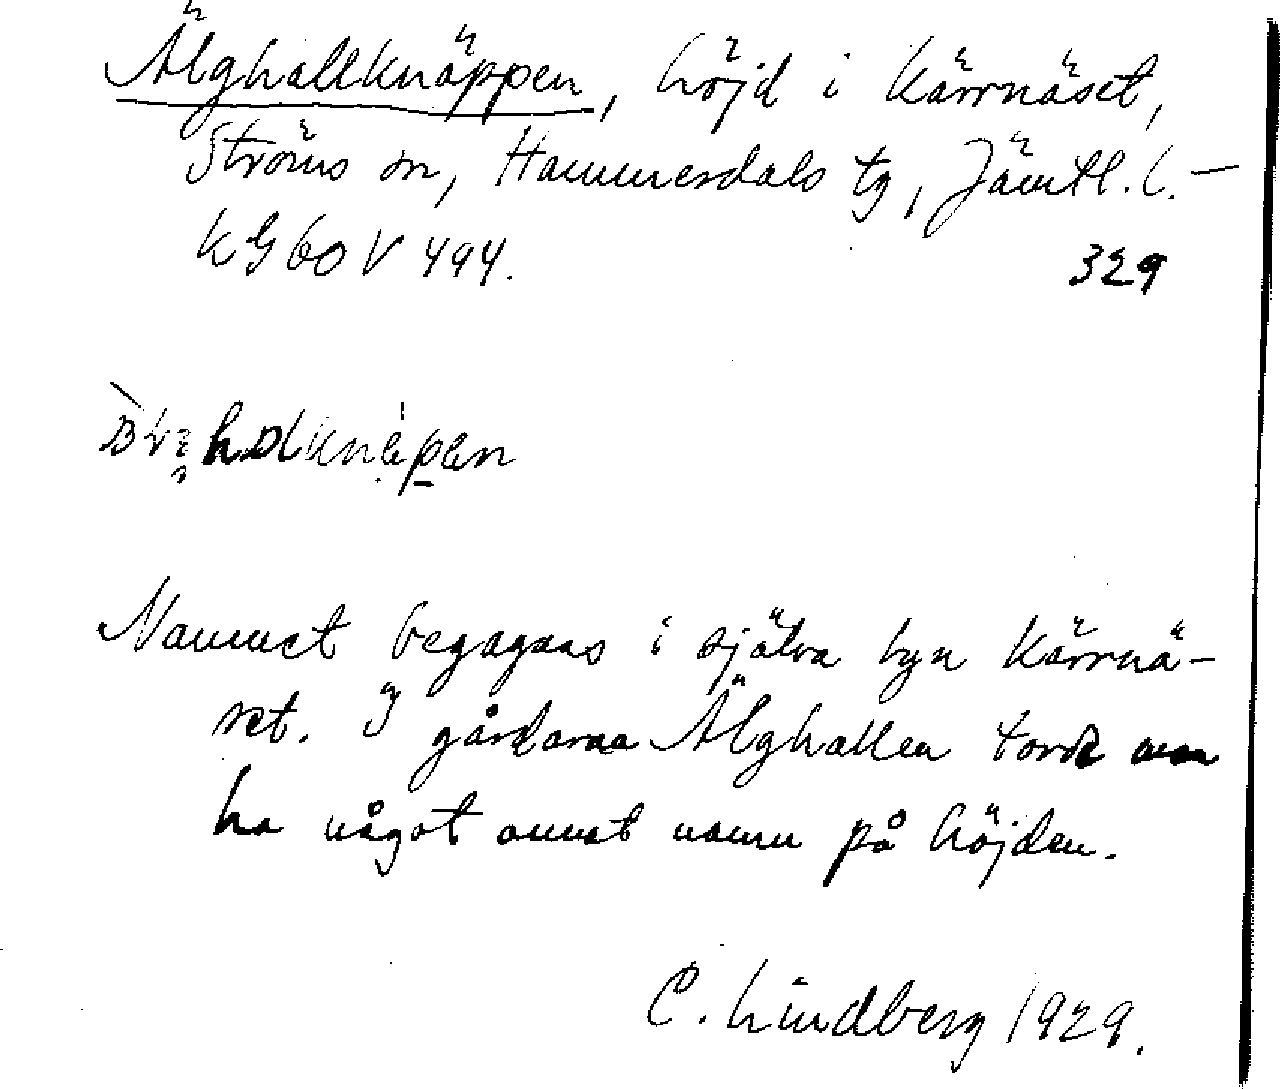 Älghallknäppen, höjd i Kärrnäset,
Ströms sn, Hammerdals tg, Jämtl. l. –
KG 60 V 494. 329
Namnet begagnas i själva byn Kärrnä-
set. I gårdarna Älghallen torde man
ha något annat namn på höjden.
C. Lindberg 1929.